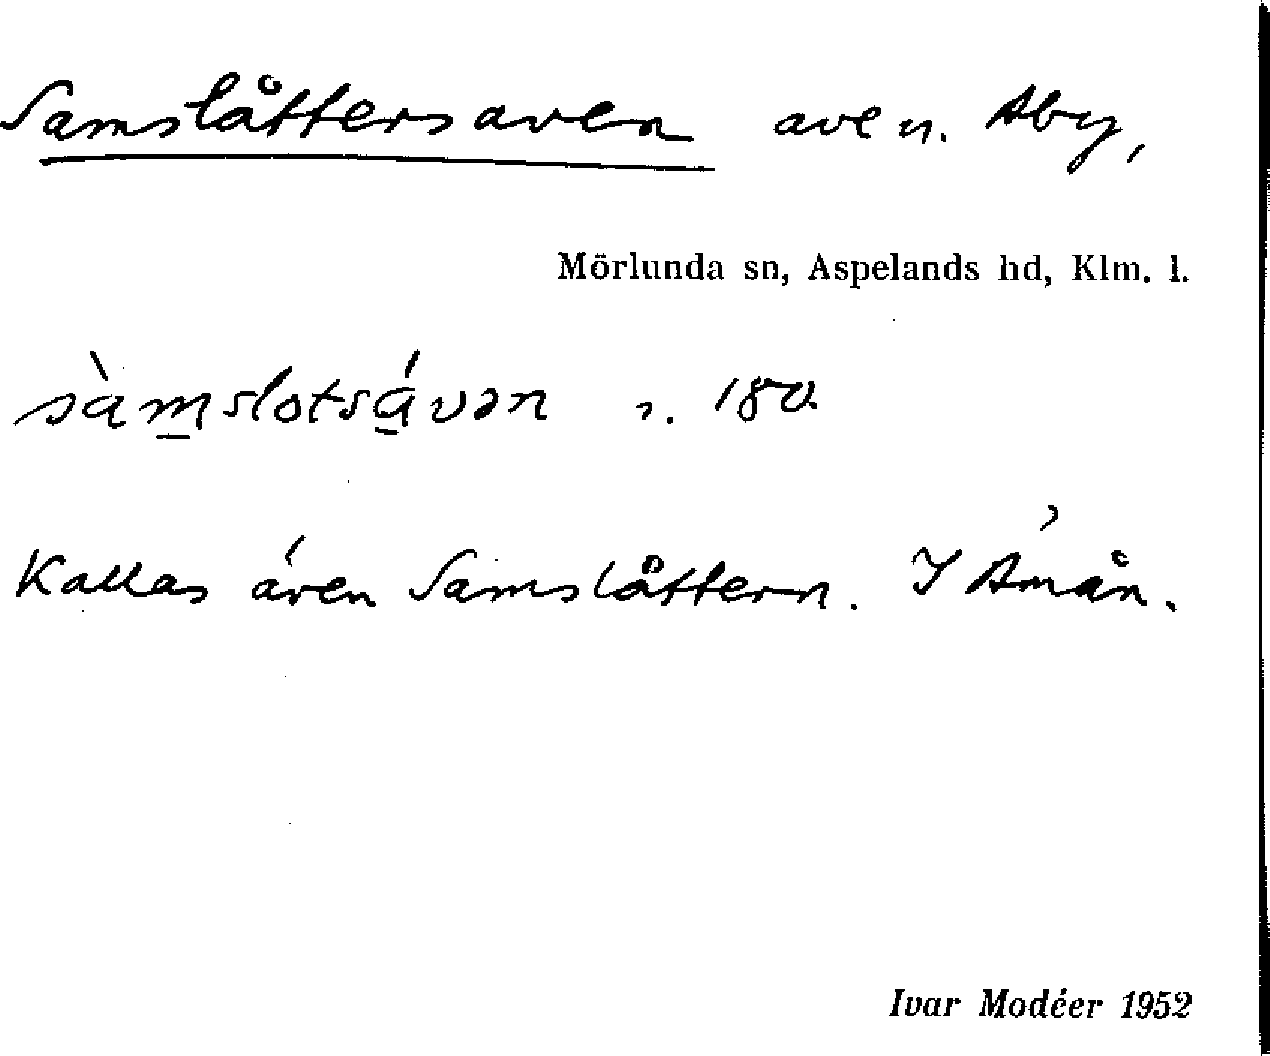 Samslåttersaven ave n. Åby,
Mörlunda sn, Aspelands hd, Klm. l.
sàmslotsávən n. 180.
Kallas även Samslåttern. I Åmån.
Ivar Modéer 1952